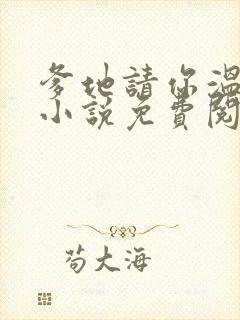 爹地請你溫
小說免費閱
苟大海